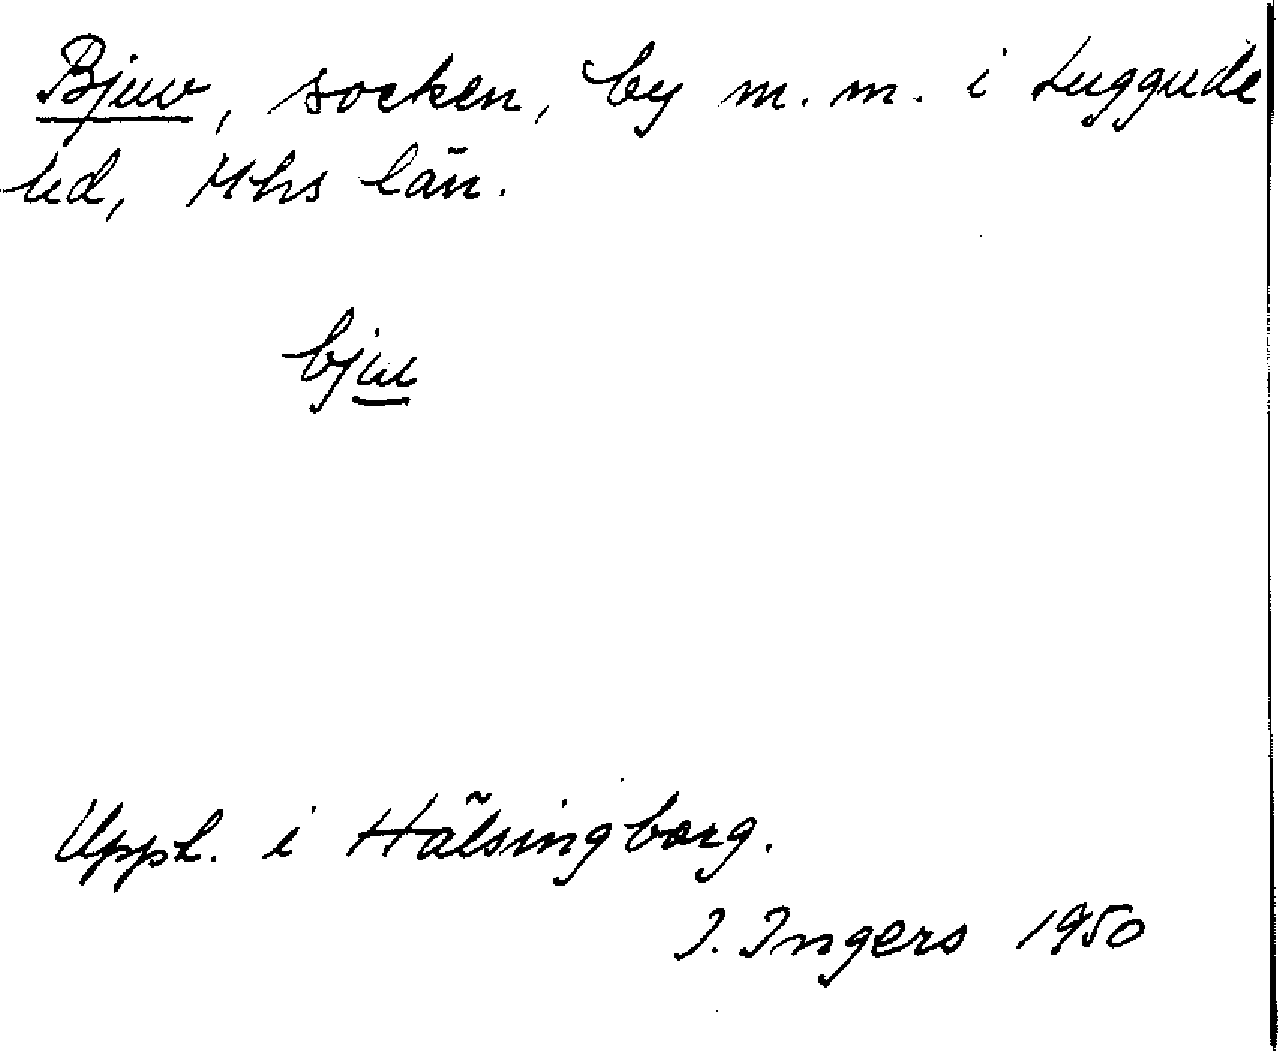 Bjuv, socken, by m. m. i Luggude
hd, Mhs län.
bju
Uppt. i Hälsingborg.
I. Ingers 1950